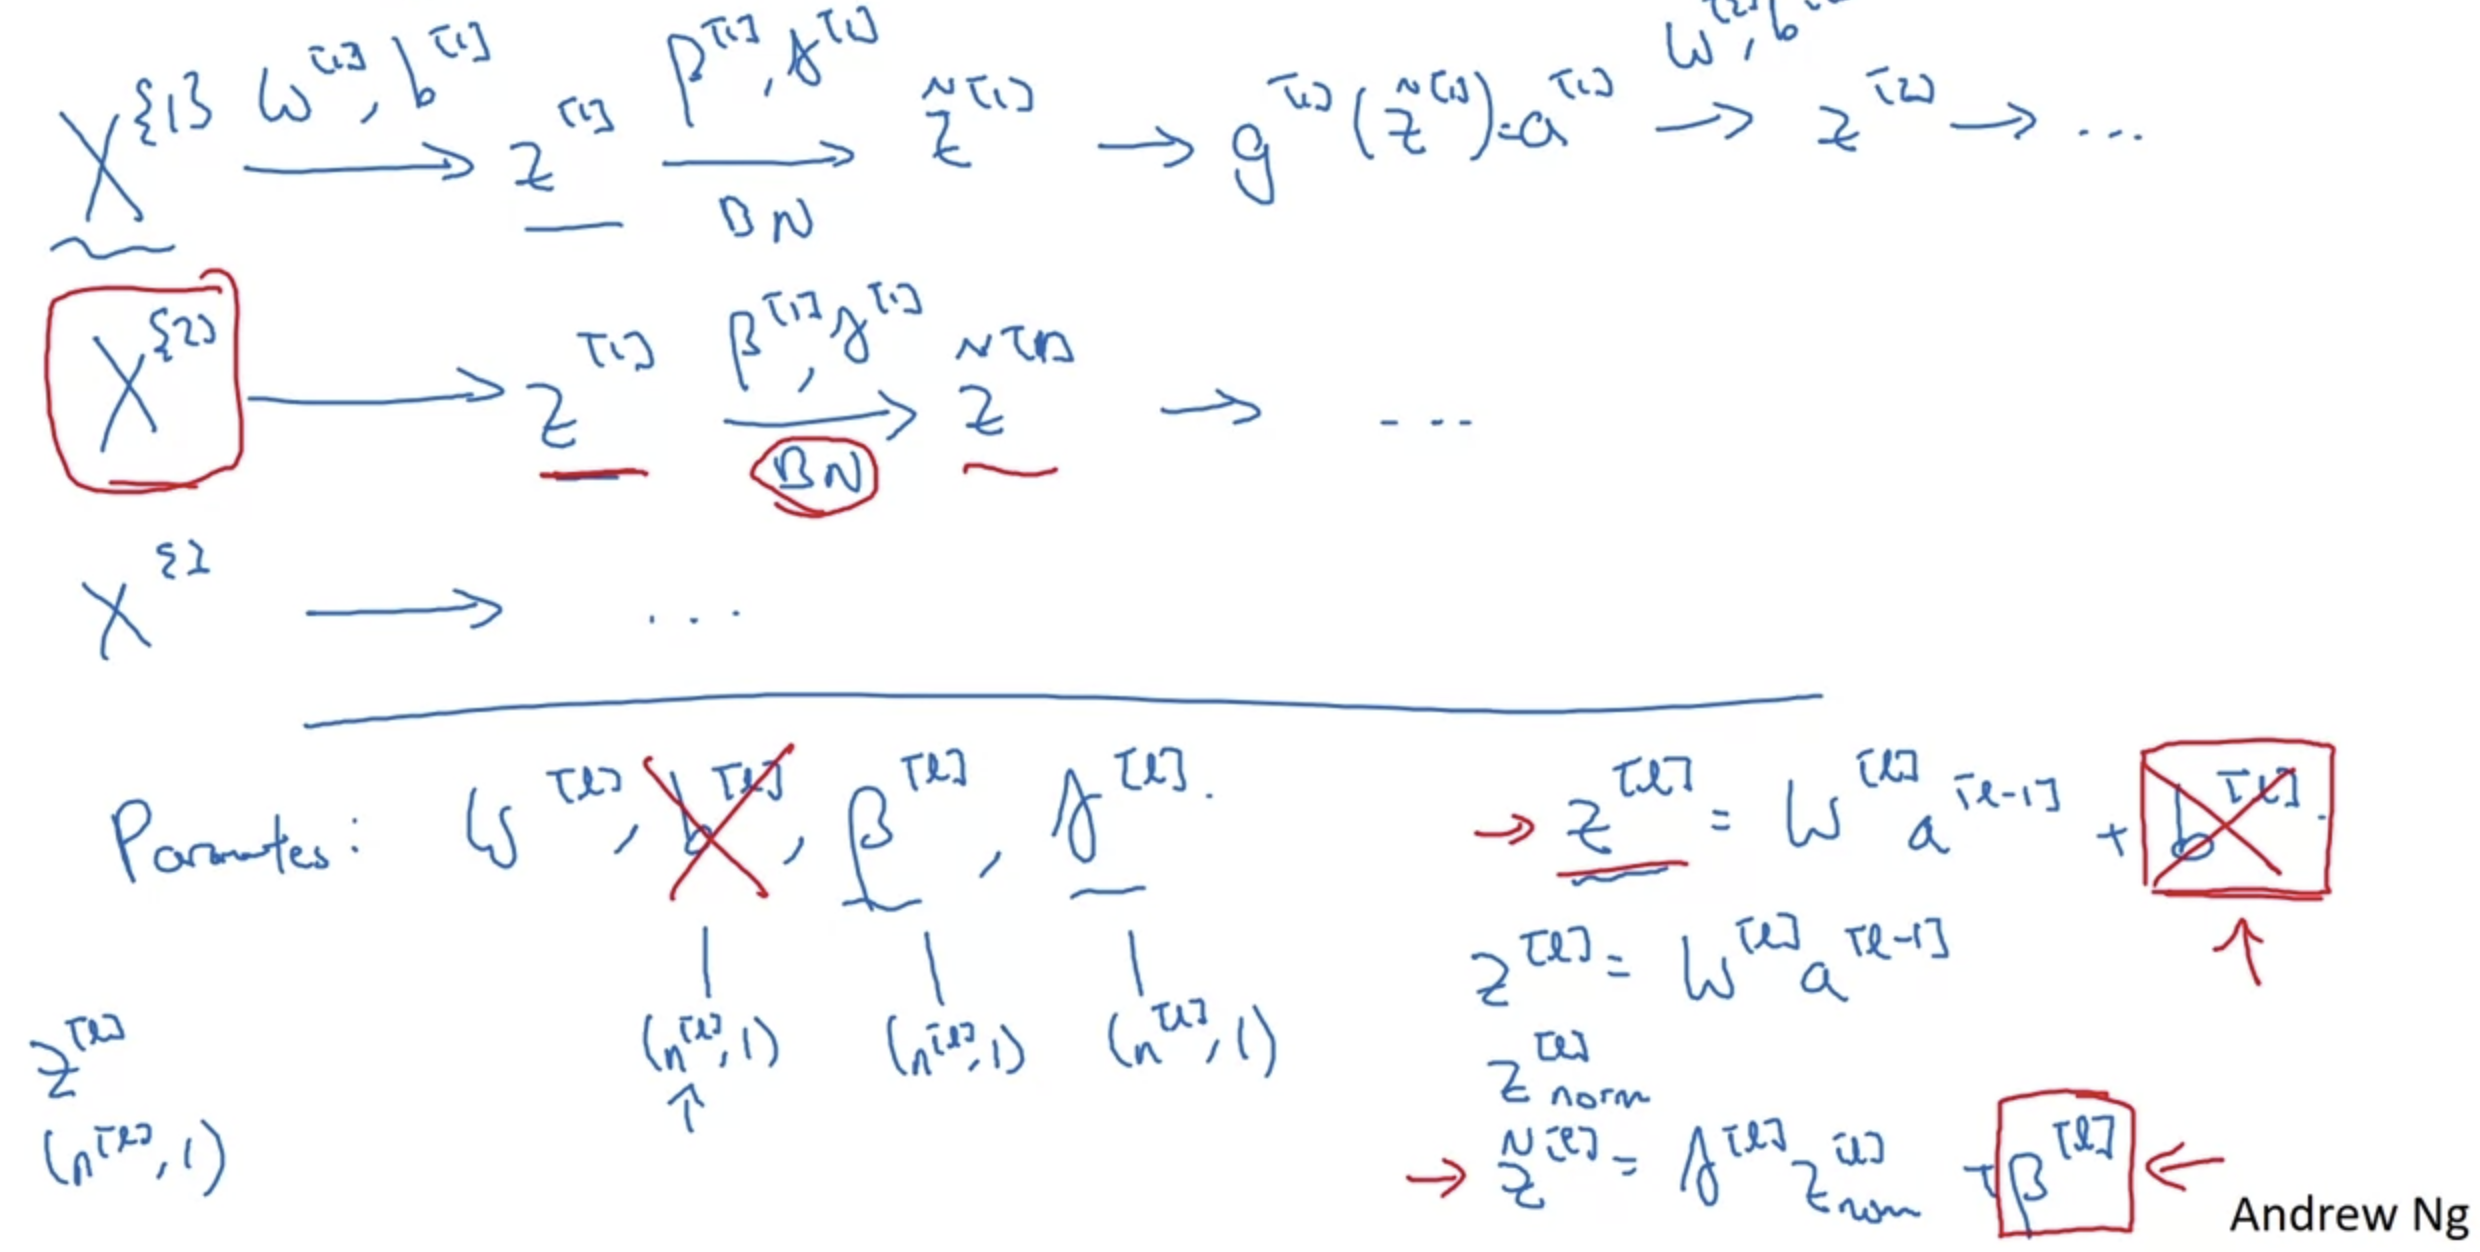 X^{1} W^[1], b^[1] → z^[1] β^[1], γ^[1] → BN z̃^[1] → g^[1](z̃^[1]) = a^[1] W^[2], b → z^[2] → ...
X^{2} → z^[1] β^[1], γ^[1] → BN z̃^[1] → ...
X^{ } → ...
Paramtes: W^[l], b^[l], β^[l], γ^[l].
(n^[l], 1) (n^[l], 1) (n^[l], 1)
z^[l]
(n^[l], 1)
→ z^[l] = W^[l] a^[l-1] + b^[l].
z^[l] = W^[l] a^[l-1]
z^[l] norm
→ z̃^[l] = γ^[l] z^[l] norm + β^[l] ←
Andrew Ng